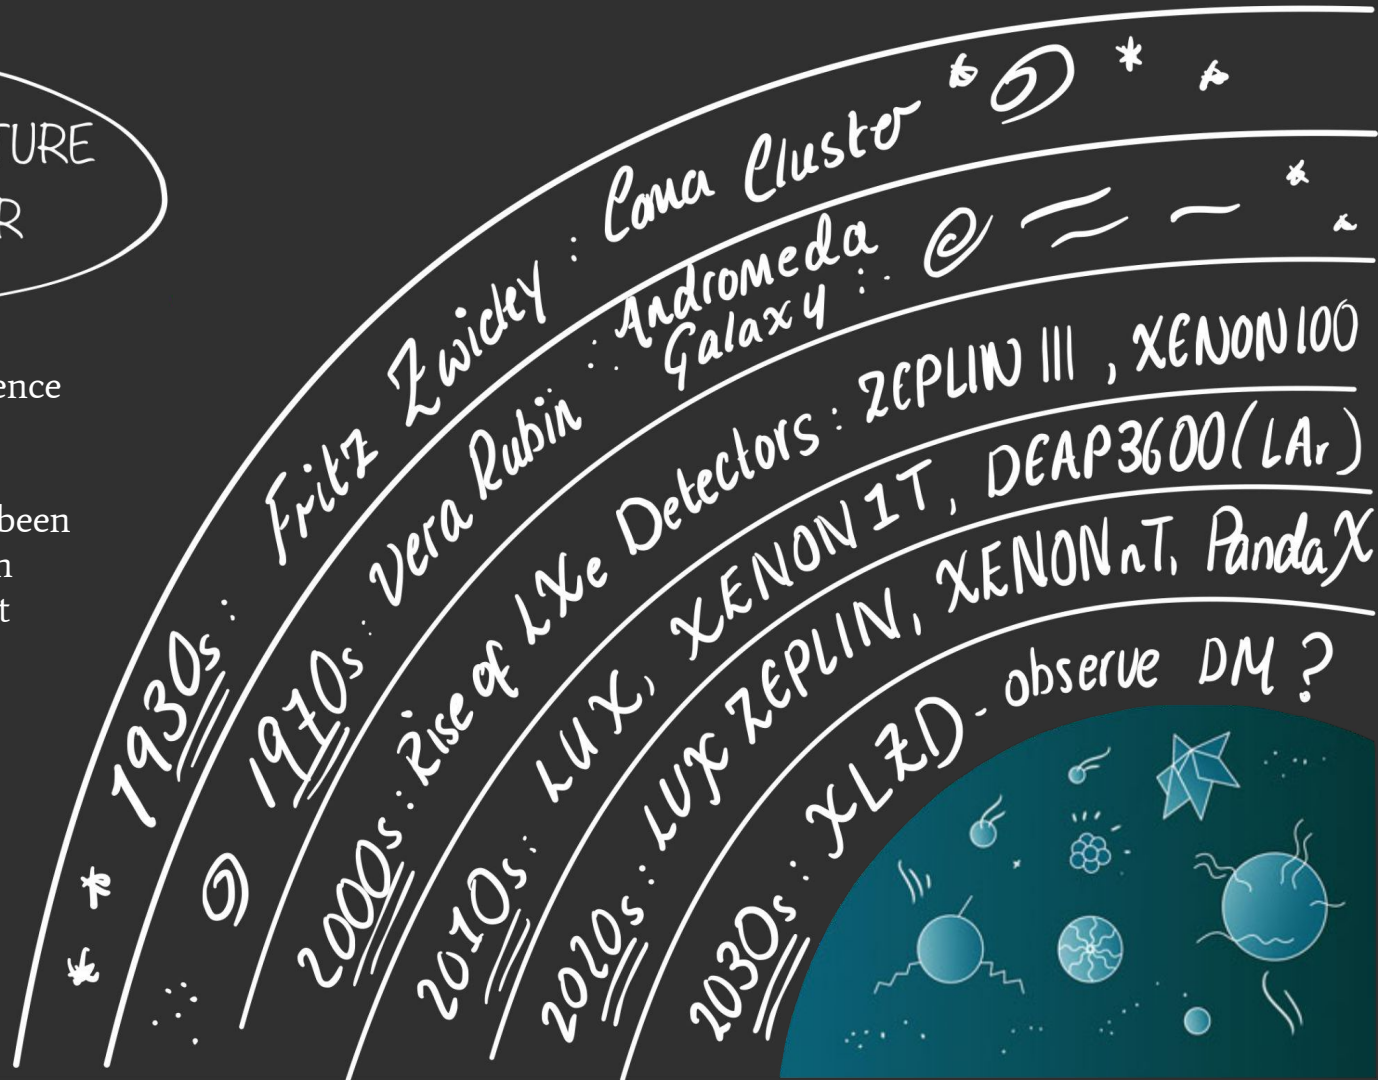 TURE
R
ence
been
n
t
1930s : Fritz Zwicky : Coma Cluster
1970s : Vera Rubin : Andromeda
Galaxy :
2000s : Rise of LXe Detectors : ZEPLIN III , XENON100
2010s : LUX, XENON1T, DEAP3600(LAr)
2020s : LUX ZEPLIN, XENONnT, PandaX
2030s : XLZD - observe DM ?